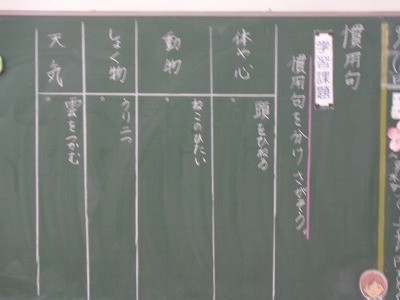 慣用句
学習課題
慣用句を分けさがそう。
体や心
頭をひねる
動物
ねこのひたい
しょく物
うり二つ
天気
雲をつかむ